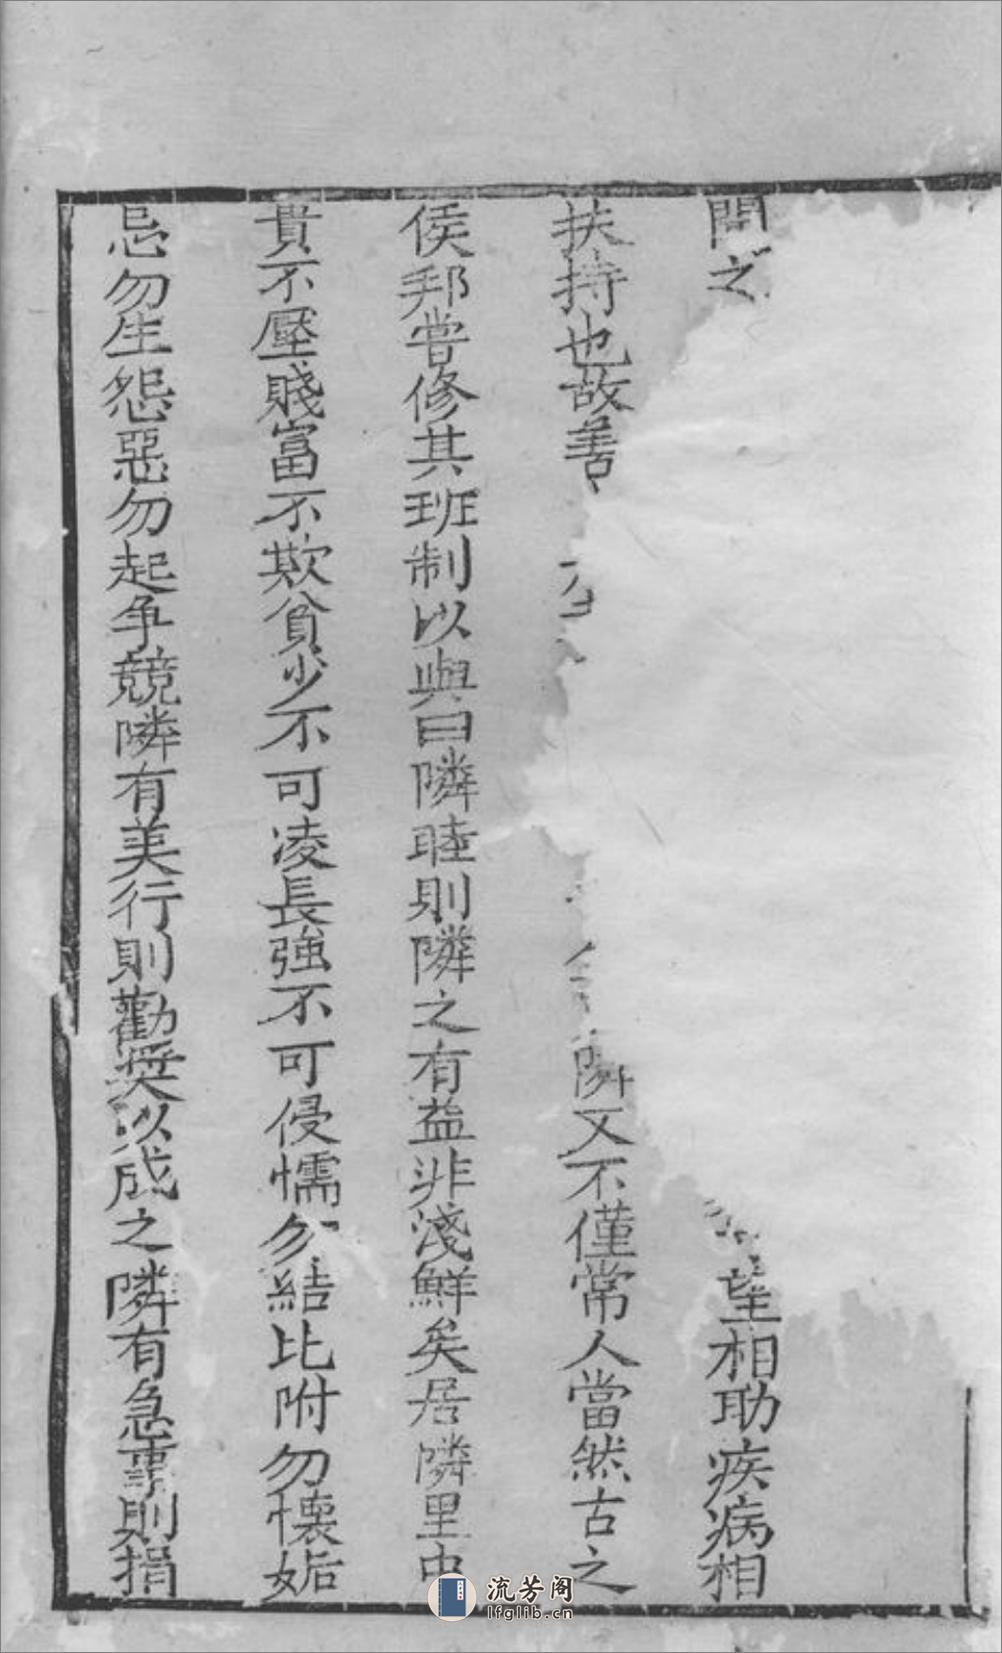 間之望相助疾病相
扶持也故善隣又不僅常人當然古之
侯邦嘗修其班制以與曰隣睦則隣之有益非淺鮮矣居隣里中
貴不壓賤富不欺貧少不可凌長強不可侵懦勿結比附勿懷妬
忌勿生怨惡勿起爭競隣有美行則勸奬以成之隣有急事則捐
流芳阁
lfglib.cn